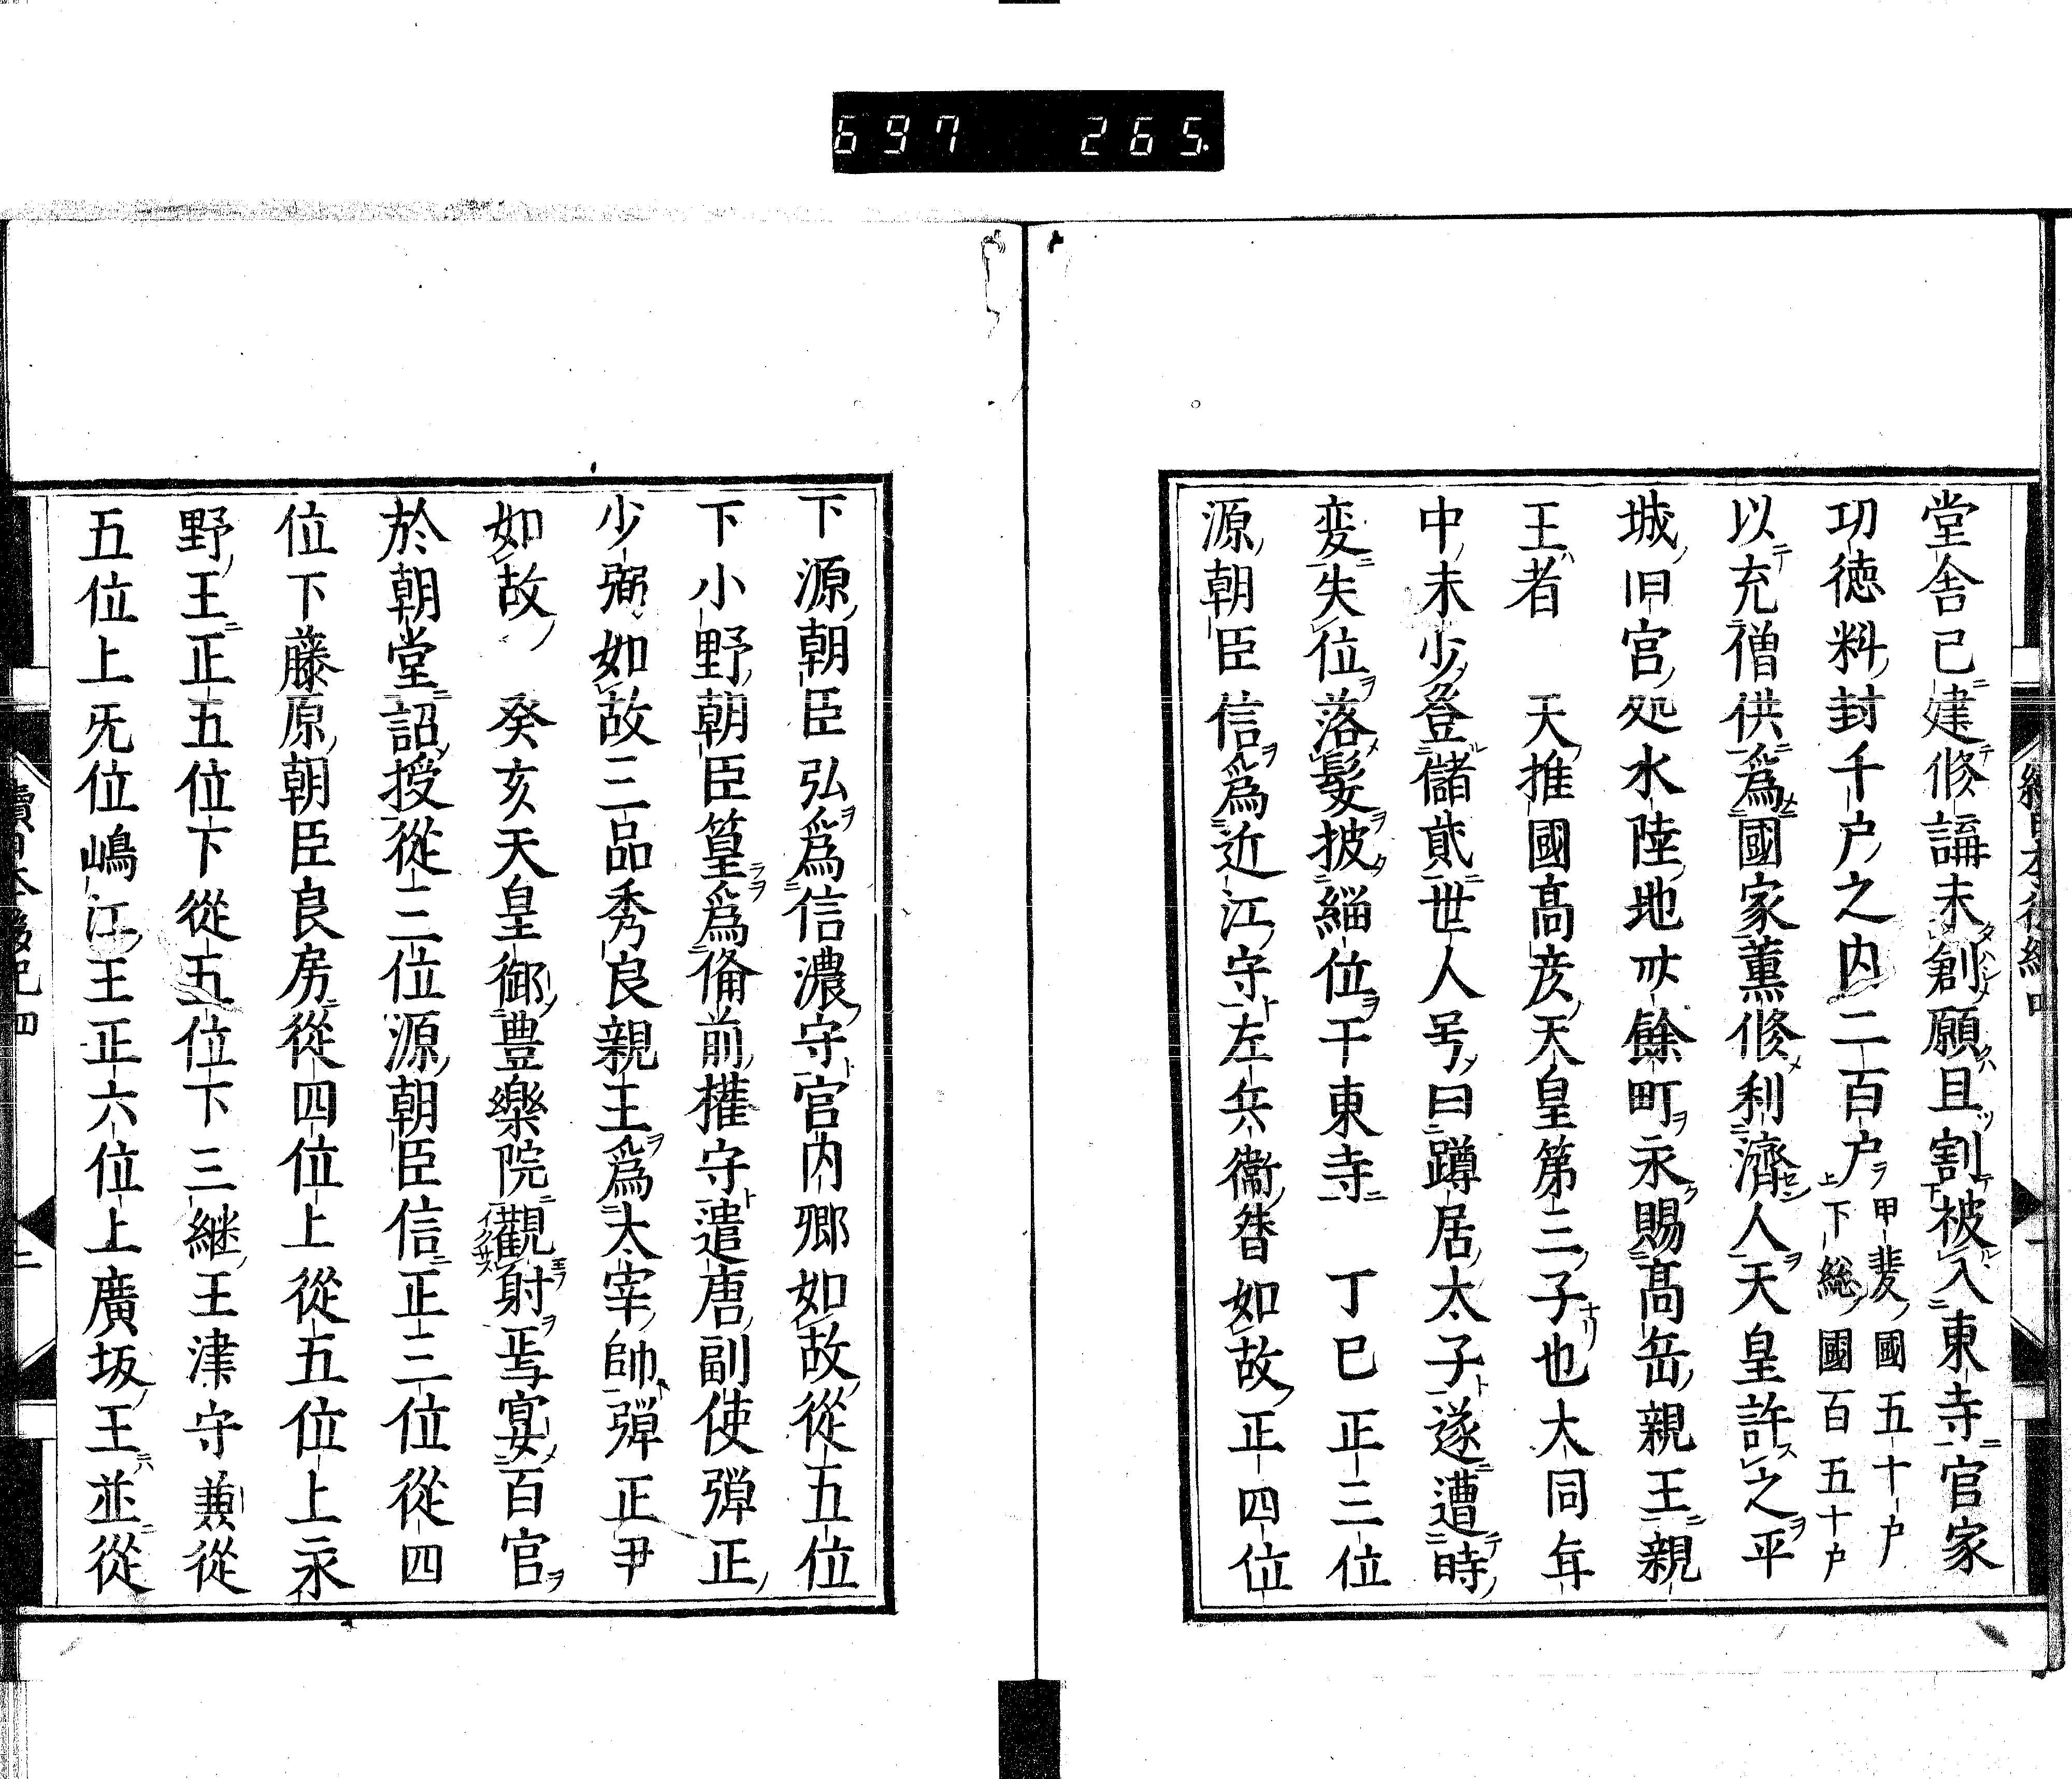 697 265.
堂舎已建修講未創願且割被入東寺官家
功徳料封千户之内二百户甲斐國五十户上下総國百五十户
以充僧供爲國家薫修利濟人天皇許之平
城旧宮処水陸地卌餘町永賜髙岳親王親
王者 天推國髙彦天皇第三子也大同年
中未少登儲貳世人号曰蹲居太子遂遭時
変失位落髮披緇位干東寺 丁巳正三位
源朝臣信爲近江守左兵衞督如故正四位
下源朝臣弘爲信濃守宮内卿如故從五位
下小野朝臣篁爲俻前權守遣唐副使弾正
少弼如故三品秀良親王爲太宰帥彈正尹
如故 癸亥天皇御豊樂院觀射焉宴百官
於朝堂詔授從三位源朝臣信正三位從四
位下藤原朝臣良房從四位上從五位上永
野王正五位下從五位下三継王津守兼從
五位上旡位嶋江王正六位上廣坂王並從
續日本後紀四 二